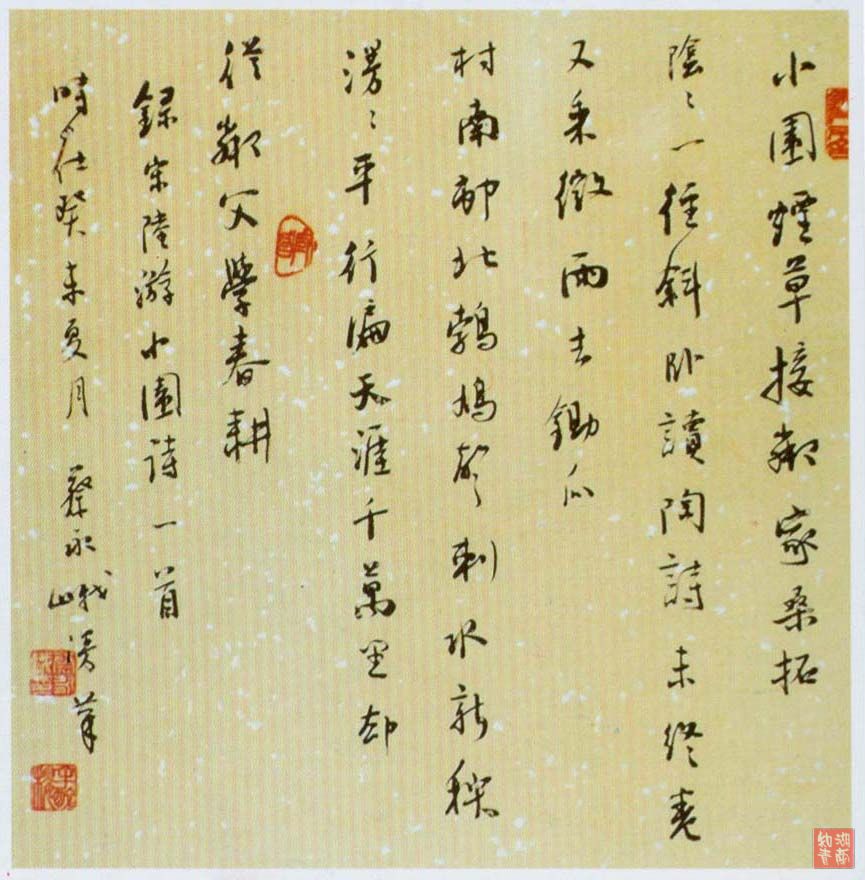 小園煙草接鄰家桑柘
陰〻一徑斜卧讀陶詩未終卷
又乘微雨去鋤瓜
村南邨北鵓鴣聲刺水新秧
漫〻平行徧天涯千萬里却
從鄰父學春耕
錄宋陸游小園詩一首
時在癸未夏月 蔡永峨 筆
湖南知青